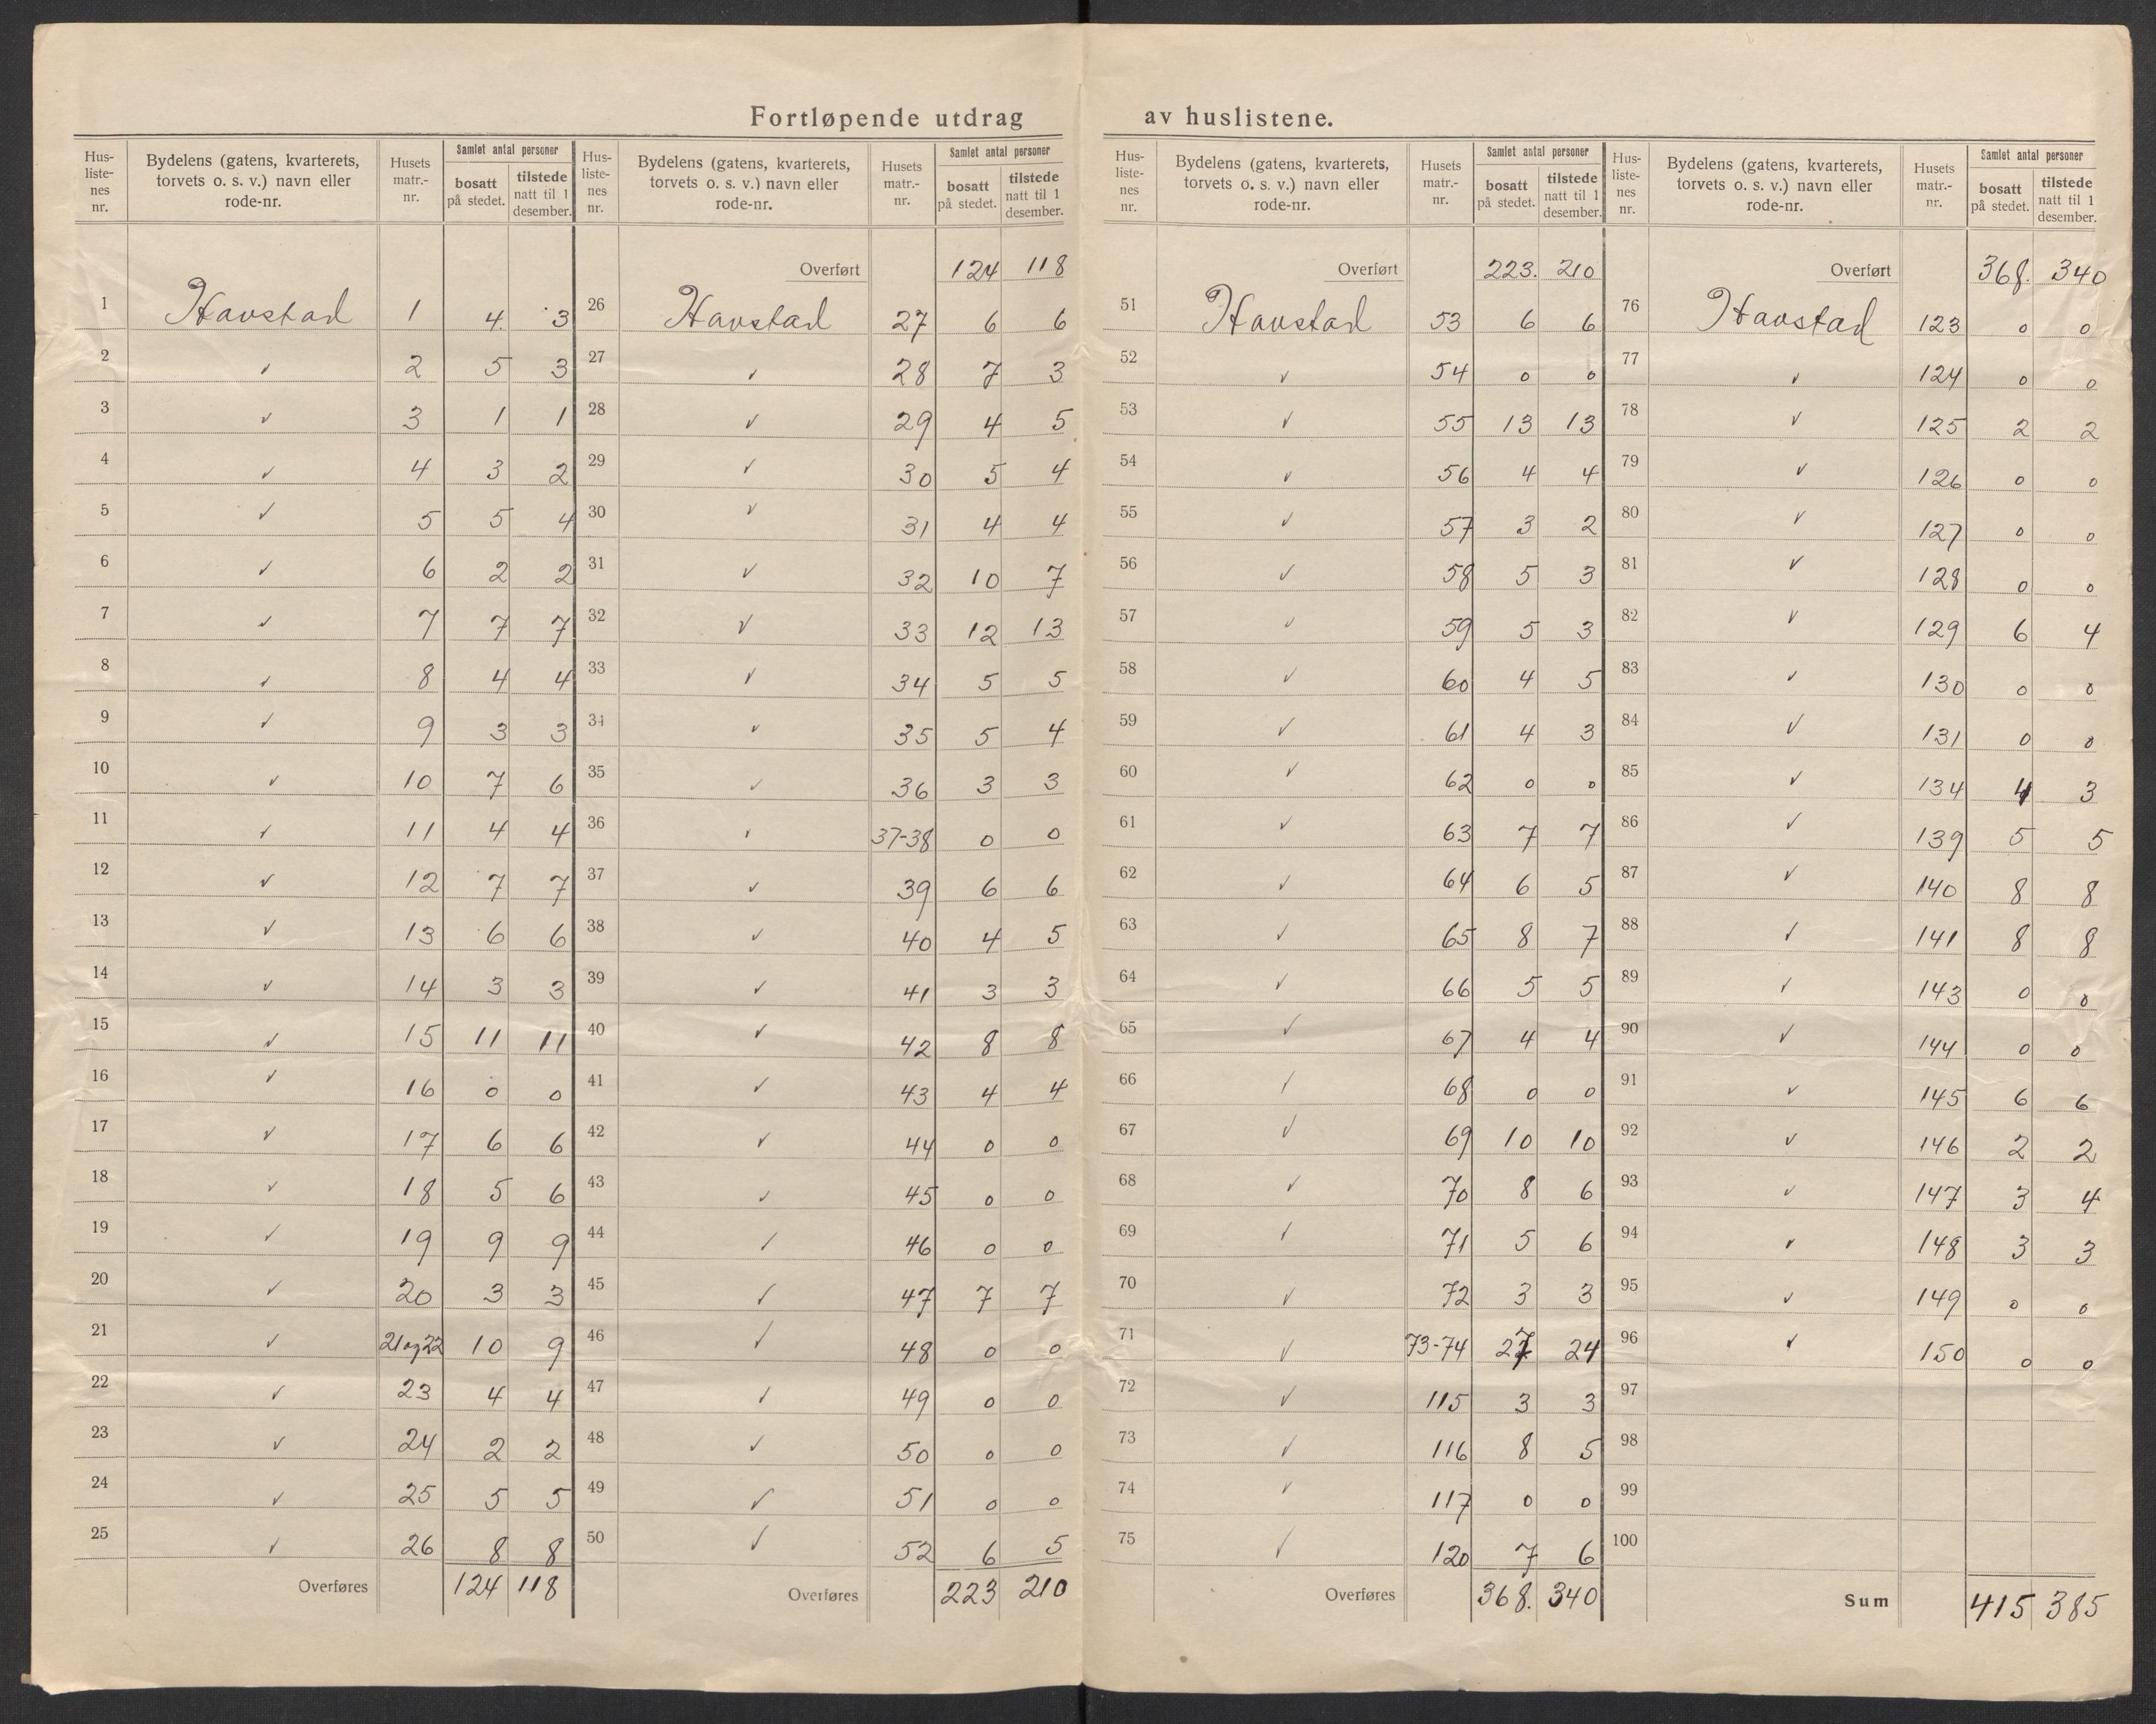 Fortløpende utdrag av huslistene.
Hus-listenes nr. | Bydelens (gatens, kvarterets, torvets o. s. v.) navn eller rode-nr. | Husets matr.-nr. | Samlet antal personer bosatt på stedet. | tilstede natt til 1 desember.
1 Havstad 1 4 3
2 ✓ 2 5 3
3 ✓ 3 1 1
4 ✓ 4 3 2
5 ✓ 5 5 4
6 ✓ 6 2 2
7 ✓ 7 7 7
8 ✓ 8 4 4
9 ✓ 9 3 3
10 ✓ 10 7 6
11 ✓ 11 4 4
12 ✓ 12 7 7
13 ✓ 13 6 6
14 ✓ 14 3 3
15 ✓ 15 11 11
16 ✓ 16 0 0
17 ✓ 17 6 6
18 ✓ 18 5 6
19 ✓ 19 9 9
20 ✓ 20 3 3
21 ✓ 21 og 22 10 9
22 ✓ 23 4 4
23 ✓ 24 2 2
24 ✓ 25 5 5
25 ✓ 26 8 8
Overføres 124 118
Hus-listenes nr. | Bydelens (gatens, kvarterets, torvets o. s. v.) navn eller rode-nr. | Husets matr.-nr. | Samlet antal personer bosatt på stedet. | tilstede natt til 1 desember.
Overført 124 118
26 Havstad 27 6 6
27 ✓ 28 7 3
28 ✓ 29 4 5
29 ✓ 30 5 4
30 ✓ 31 4 4
31 ✓ 32 10 7
32 ✓ 33 12 13
33 ✓ 34 5 5
34 ✓ 35 5 4
35 ✓ 36 3 3
36 ✓ 37-38 0 0
37 ✓ 39 6 6
38 ✓ 40 4 5
39 ✓ 41 3 3
40 ✓ 42 8 8
41 ✓ 43 4 4
42 ✓ 44 0 0
43 ✓ 45 0 0
44 ✓ 46 0 0
45 ✓ 47 7 7
46 ✓ 48 0 0
47 ✓ 49 0 0
48 ✓ 50 0 0
49 ✓ 51 0 0
50 ✓ 52 6 5
Overføres 223 210
Hus-listenes nr. | Bydelens (gatens, kvarterets, torvets o. s. v.) navn eller rode-nr. | Husets matr.-nr. | Samlet antal personer bosatt på stedet. | tilstede natt til 1 desember.
Overført 223. 210
51 Havstad 53 6 6
52 ✓ 54 0 0
53 ✓ 55 13 13
54 ✓ 56 4 4
55 ✓ 57 3 2
56 ✓ 58 5 3
57 ✓ 59 5 3
58 ✓ 60 4 5
59 ✓ 61 4 3
60 ✓ 62 0 0
61 ✓ 63 7 7
62 ✓ 64 6 5
63 ✓ 65 8 7
64 ✓ 66 5 5
65 ✓ 67 4 4
66 ✓ 68 0 0
67 ✓ 69 10 10
68 ✓ 70 8 6
69 ✓ 71 5 6
70 ✓ 72 3 3
71 ✓ 73-74 27 24
72 ✓ 115 3 3
73 ✓ 116 8 5
74 ✓ 117 0 0
75 ✓ 120 7 6
Overføres 368. 340
Hus-listenes nr. | Bydelens (gatens, kvarterets, torvets o. s. v.) navn eller rode-nr. | Husets matr.-nr. | Samlet antal personer bosatt på stedet. | tilstede natt til 1 desember.
Overført 368. 340
76 Havstad 123 0 0
77 ✓ 124 0 0
78 ✓ 125 2 2
79 ✓ 126 0 0
80 ✓ 127 0 0
81 ✓ 128 0 0
82 ✓ 129 6 4
83 ✓ 130 0 0
84 ✓ 131 0 0
85 ✓ 134 4 3
86 ✓ 139 5 5
87 ✓ 140 8 8
88 ✓ 141 8 8
89 ✓ 143 0 0
90 ✓ 144 0 0
91 ✓ 145 6 6
92 ✓ 146 2 2
93 ✓ 147 3 4
94 ✓ 148 3 3
95 ✓ 149 0 0
96 ✓ 150 0 0
97
98
99
100
Sum 415 385